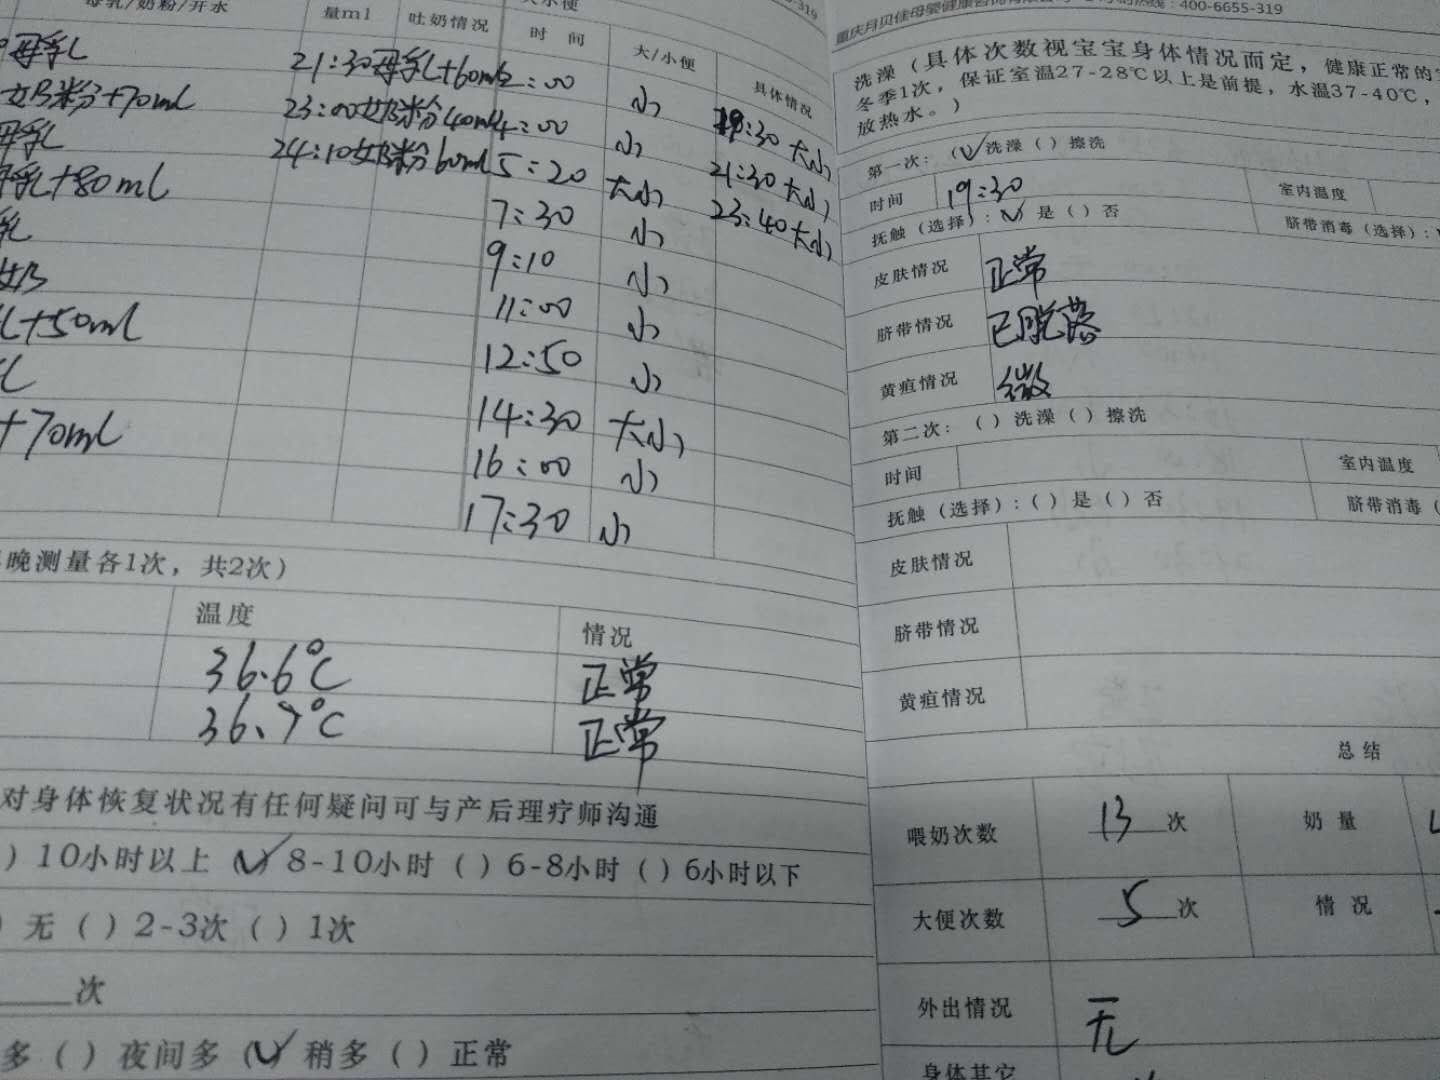 母乳/奶粉/开水
量ml
吐奶情况
时 间
大/小便
具体情况
母乳
21:30母乳+60ml
2:00
小
19:30 大小
奶粉+70ml
23:00奶粉40ml
4:00
小
21:30 大小
母乳
24:10奶粉60ml
5:20
大小
23:40 大小
母乳+80ml
7:30
小
乳
9:10
小
奶
11:00
小
乙+50ml
12:50
小
14:30
大小
+70ml
16:00
小
17:30
小
晚测量各1次，共2次）
温度
情况
36.6℃
正常
36.7℃
正常
对身体恢复状况有任何疑问可与产后理疗师沟通
）10小时以上（√）8-10小时（ ）6-8小时（ ）6小时以下
）无（ ）2-3次（ ）1次
____次
多（ ）夜间多（√）稍多（ ）正常
重庆月贝佳母婴健康咨询有限公司
400-6655-319
洗澡（具体次数视宝宝身体情况而定，健康正常的
冬季1次，保证室温27-28℃以上是前提，水温37-40℃，
放热水。）
第一次：（√）洗澡（ ）擦洗
时间
19:30
室内温度
抚触（选择）：（√）是（ ）否
脐带消毒（选择）：
皮肤情况
正常
脐带情况
已脱落
黄疸情况
微
第二次：（ ）洗澡（ ）擦洗
时间
室内温度
抚触（选择）：（ ）是（ ）否
脐带消毒（
皮肤情况
脐带情况
黄疸情况
总结
喂奶次数
13次
奶 量
大便次数
5次
情 况
外出情况
无
身体其它